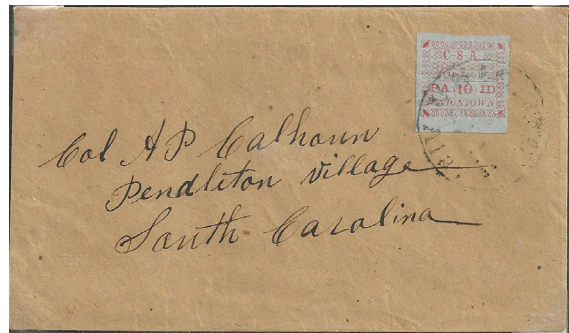 C-S-A
PA 10 ID
UNIONTOWN
Col A P Calhoun
Pendleton Village
South Carolina